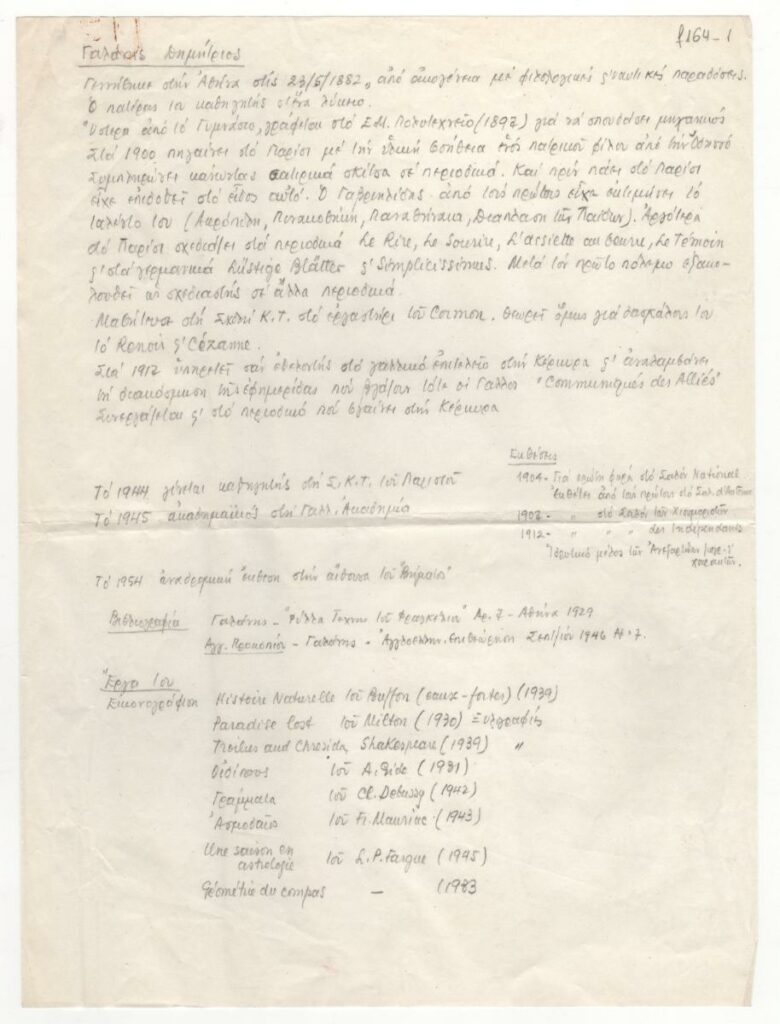 f164-1
Γαλάνης Δημήτριος
Γεννήθηκε στήν Ἀθήνα στίς 23/5/1882, ἀπό οἰκογένεια μέ φιλολογικές ς' ναυτικές παραδόσεις.
Ὁ πατέρας του καθηγητής σ' ἕνα λύκειο.
Ὕστερα ἀπό τό Γυμνάσιο, γράφεται στό Ε.Μ. Πολυτεχνεῖο (1897) γιά νά σπουδάσει μηχανικός
Στά 1900 πηγαίνει στό Παρίσι μέ τήν ὑλική βοήθεια ἑνός πατρικοῦ φίλου ἀπό τήν
Συμπληρώνει κάνοντας σατιρικά σκίτσα σέ περιοδικά. Καί πρίν πάει στό Παρίσι
εἶχε ἐπιδοθεῖ στό εἶδος αὐτό. Ὁ Γαβριηλίδης ἀπό τούς πρώτους εἶχε ἐκτιμήσει τό
ταλέντο του (Ἀκρόπολη, Πινακοθήκη, Παναθήναια, Διάπλαση τῶν Παίδων). Ἀργότερα
στό Παρίσι σχεδιάζει στά περιοδικά Le Rire, Le Sourire, L'assiette au beurre, Le Témoin
ς' στά γερμανικά Lüstige Blätter ς' Simplicissimus. Μετά τόν πρῶτο πόλεμο ἐξακο-
λουθεῖ ὡς σχεδιαστής σέ ἄλλα περιοδικά.
Μαθήτευσε στή Σχολή Κ.Τ. στό ἐργαστήρι τοῦ Cormon. Θεωρεῖ ὅμως γιά δασκάλους του
τό Renoir ς' Cézanne.
Στά 1917 ὑπηρετεῖ σάν ἐθελοντής στό γαλλικό ἐπιτελεῖο στήν Κέρκυρα ς' ἀναλαμβάνει
τή διακόσμηση τῆς ἐφημερίδας πού βγάζουν τότε οἱ Γάλλοι "Communiqués des Alliés"
Συνεργάζεται ς' στό περιοδικό πού βγαίνει στήν Κέρκυρα
Ἐκθέσεις
1904- Γιά πρώτη φορά στό Σαλόν National
ἐκθέτει ἀπό τούς πρώτους στό Σαλ. d'Automne
Τό 1944 γίνεται καθηγητής στή Σ.Κ.Τ. τοῦ Παρισιοῦ
Τό 1945 ἀκαδημαϊκός στή Γαλλ. Ἀκαδημία
1907- " στό Σαλόν τῶν Χιουμοριστῶν
1912- " " " des Indépendants
Ἱδρυτικό μέλος τῶν Ἀνεξαρτήτων ς'
χαρακτῶν.
Τό 1954 ἀναδρομική ἔκθεση στήν αἴθουσα τοῦ "Βήματος"
Βιβλιογραφία Γαλάνης - "Φύλλα Τέχνης τοῦ Φραγκελίου" Αρ. 7 - Ἀθήνα 1929
Αγγ. Προκοπίου - Γαλάνης - Ἀγγλοελλην. Ἐπιθεώρηση 1946 Νο 7.
Ἔργα του
Εἰκονογράφιση Histoire Naturelle τοῦ Buffon (eaux-fortes) (1939)
Paradise lost τοῦ Milton (1930) Ξυλογραφίες
Troilus and Chresida, Shakespeare (1939) "
Οἰδίπους τοῦ A. Gide (1931)
Γράμματα τοῦ Cl. Debussy (1942)
Ἀσμοδαῖος τοῦ Fr. Mauriac (1943)
Une saison en
astrologie τοῦ L.P. Fargue (1945)
Géométrie du compas — (1983